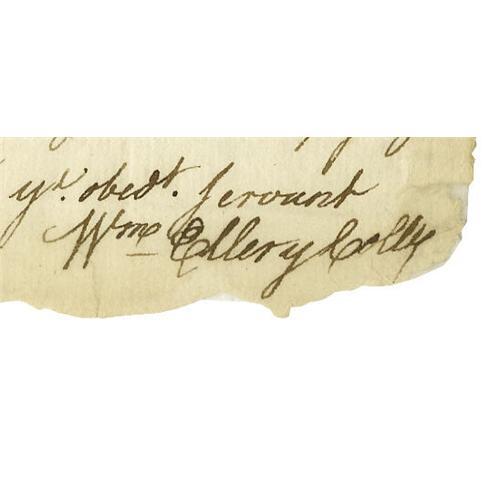 yr. obedt. servant
Wm Ellery Collr